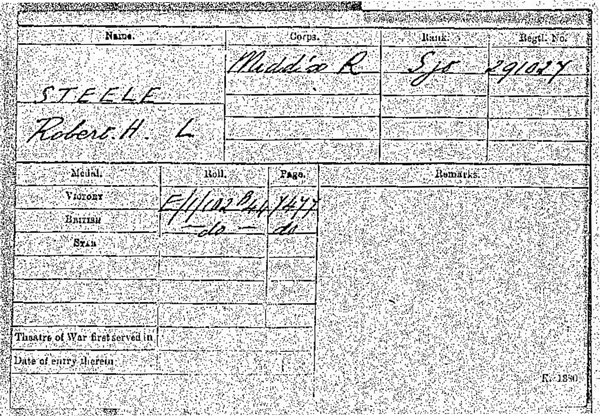 Name. Corps. Rank. Regtl. No.
Middx R Sjt 291027
STEELE
Robert. H. L
Medal. Roll. Page. Remarks.
VICTORY E/1/102B44 7477
BRITISH — do — do
STAR
Theatre of War first served in
Date of entry therein
K. 1380